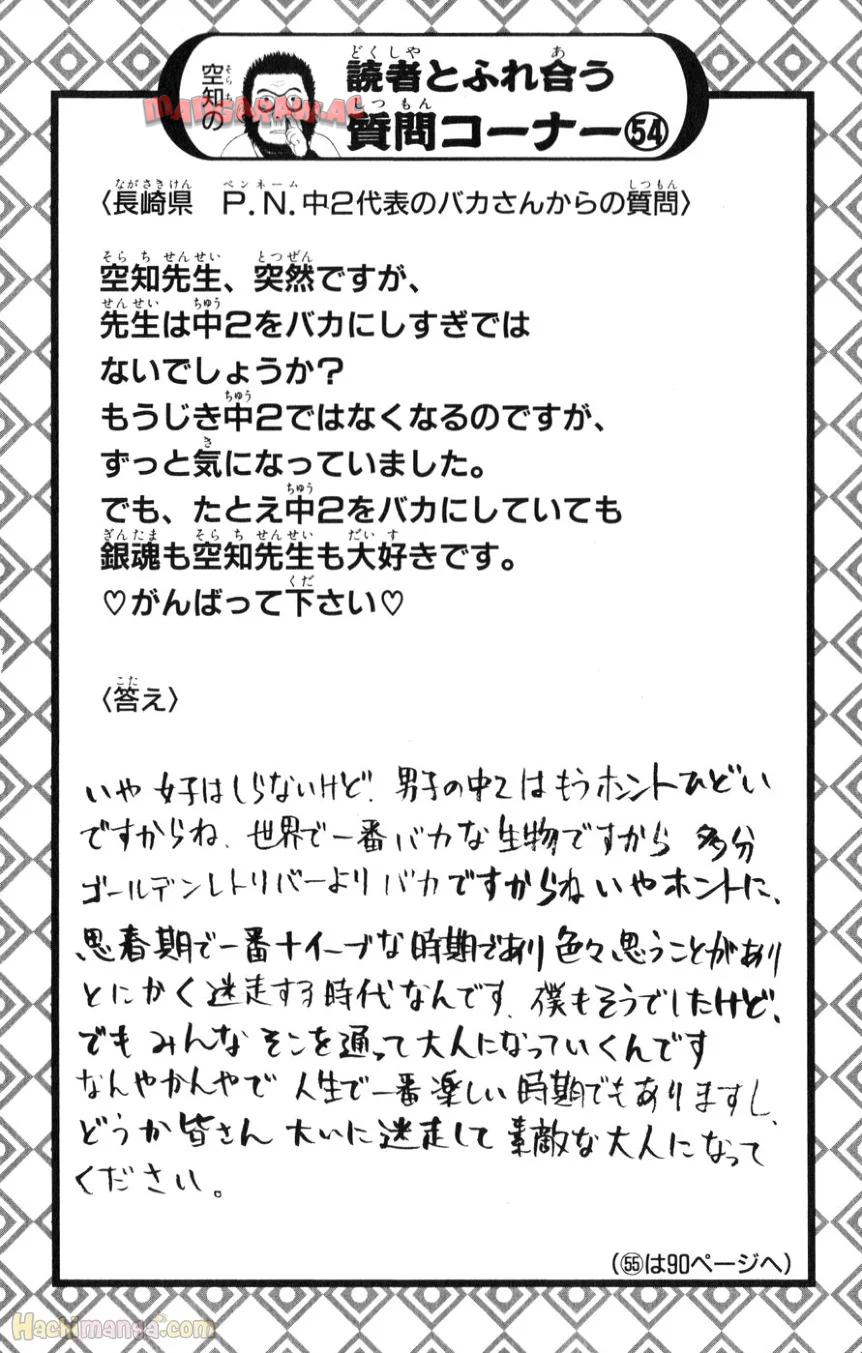 空知の
読者とふれ合う
質問コーナー㊴
〈長崎県 P.N.中2代表のバカさんからの質問〉
空知先生、突然ですが、
先生は中2をバカにしすぎでは
ないでしょうか?
もうじき中2ではなくなるのですが、
ずっと気になっていました。
でも、たとえ中2をバカにしていても
銀魂も空知先生も大好きです。
♡がんばって下さい♡
〈答え〉
いや 女子はしらないけど、男子の中2はもうホントひどい
ですからね、世界で一番バカな生物ですから 多分
ゴールデンレトリバーよりバカですからねいやホントに、
思春期で一番ナイーブな時期であり色々思うことがあり
とにかく迷走する時代なんです、僕もそうでしたけど、
でも みんな そこを通って大人になっていくんです
なんやかんやで 人生で一番楽しい時期でもありますし、
どうか皆さん 大いに迷走して 素敵な大人になって
ください。
(55は90ページへ)
MANGARAW.AC
Hachimanga.com